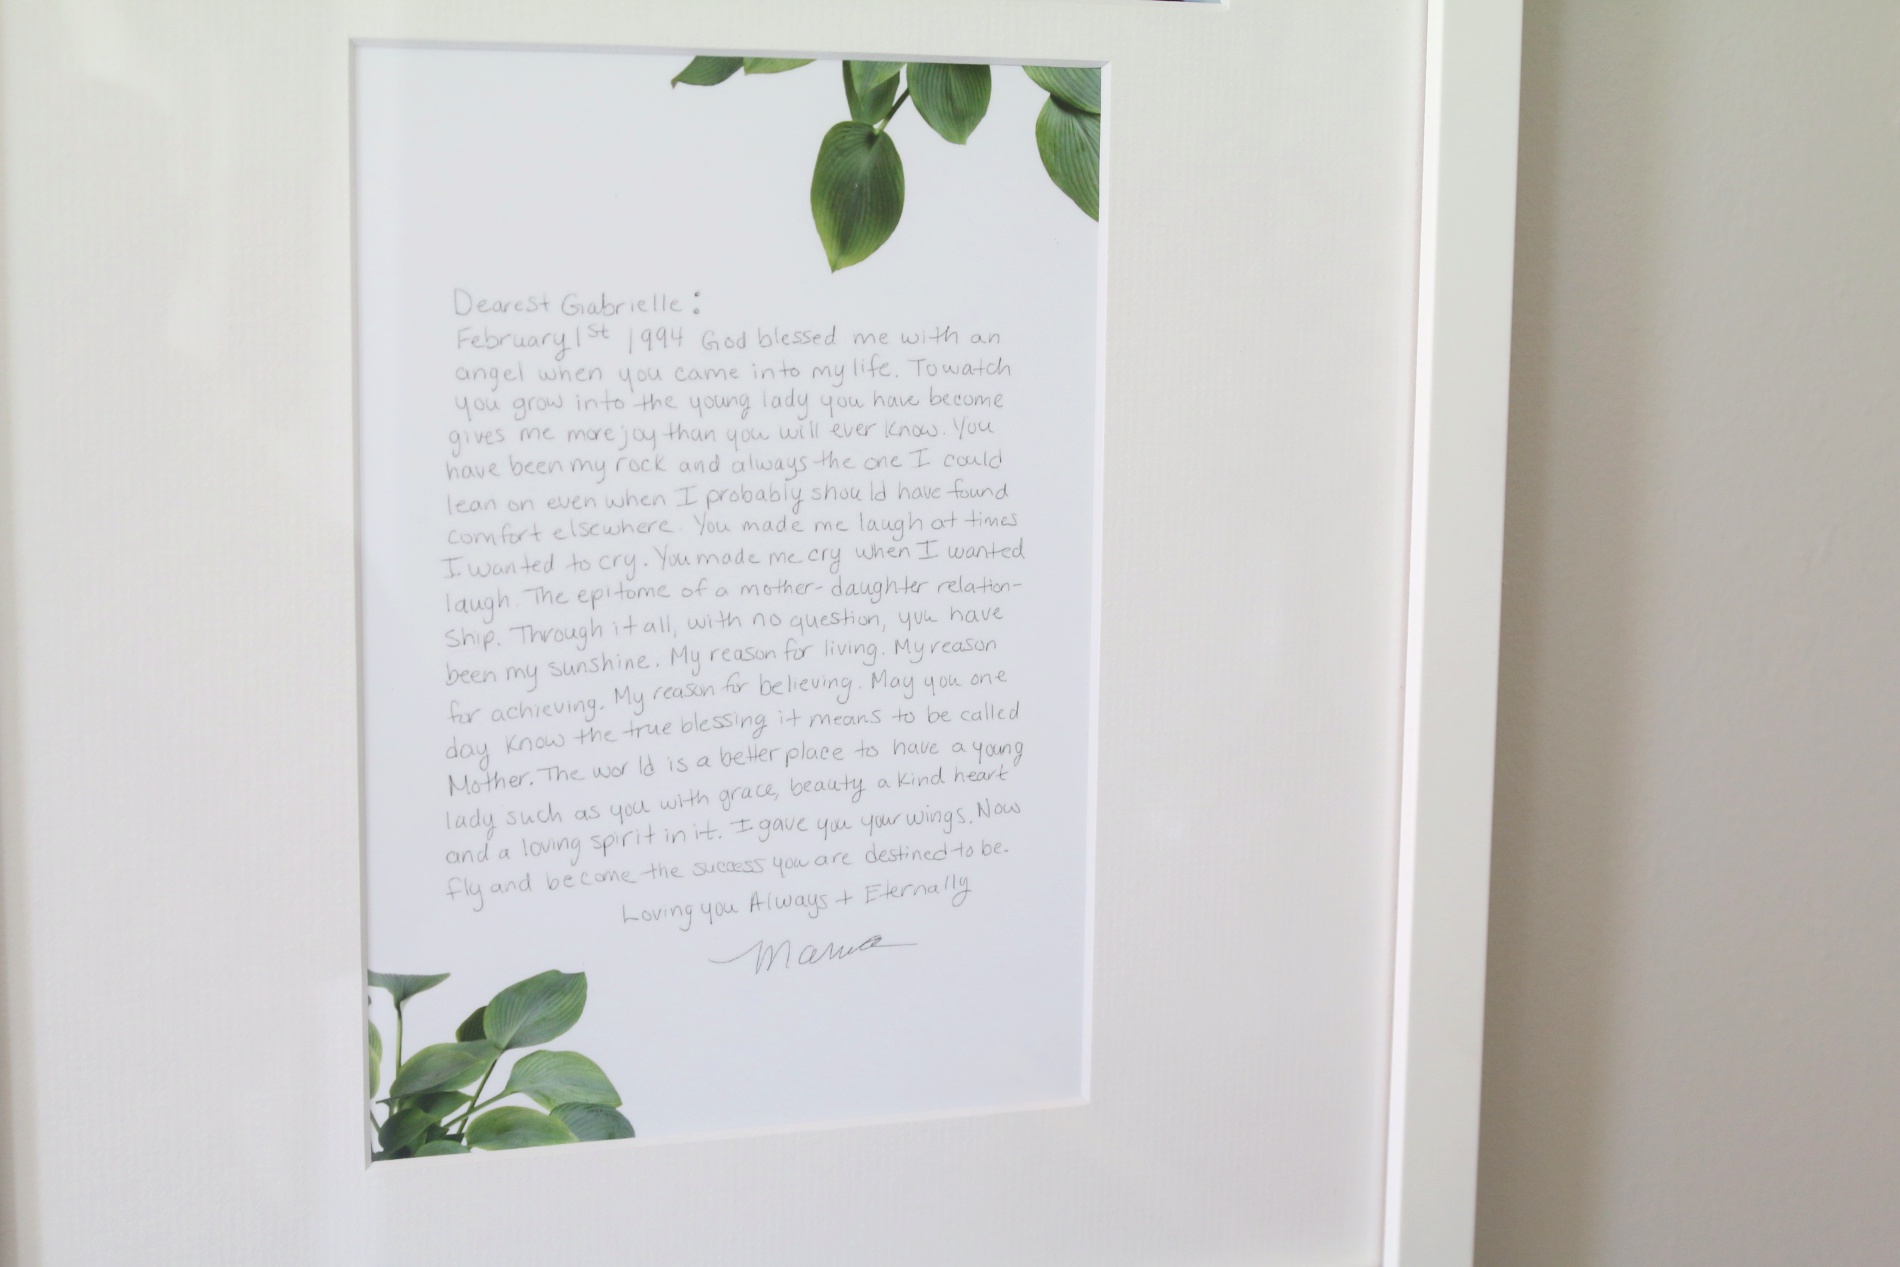 Dearest Gabrielle:
February 1st 1994 God blessed me with an
angel when you came into my life. To watch
you grow into the young lady you have become
gives me more joy than you will ever know. You
have been my rock and always the one I could
lean on even when I probably should have found
comfort elsewhere. You made me laugh at times
I wanted to cry. You made me cry when I wanted
laugh. The epitome of a mother-daughter relation-
ship. Through it all, with no question, you have
been my sunshine. My reason for living. My reason
for achieving. My reason for believing. May you one
day know the true blessing it means to be called
Mother. The world is a better place to have a young
lady such as you with grace, beauty a kind heart
and a loving spirit in it. I gave you your wings. Now
fly and become the success you are destined to be.
Loving you Always + Eternally
Mama